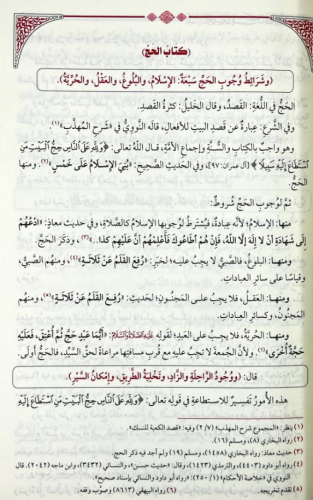 ﴿كتاب الحج﴾
(وشرائط وجوب الحج سبعة: الإسلام، والبلوغ، والعقل، والحرية)
الحج في اللغة: القصد، وقال الخليل: كثرة القصد.
وفي الشرع: عبارة عن قصد البيت للأفعال، قاله النووي في «شرح المهذب»(١).
وهو واجب بالكتاب والسنة وإجماع الأمة، قال الله تعالى: ﴿وَلِلَّهِ عَلَى النَّاسِ حِجُّ الْبَيْتِ مَنِ
اسْتَطَاعَ إِلَيْهِ سَبِيلًا﴾ [آل عمران: ٩٧]، وفي الحديث الصحيح: «بُنِيَ الإِسْلَامُ عَلَى خَمْسٍ»(٢)، ومنها
الحج.
ثم لوجوب الحج شروط:
منها: الإسلام؛ لأنه عبادة، فيشترط لوجوبها الإسلام كالصلاة، وفي حديث معاذ: «ادْعُهُمْ
إِلَى شَهَادَةِ أَنْ لَا إِلَهَ إِلَّا اللَّهُ، فَإِنْ هُمْ أَطَاعُوكَ فَأَعْلِمْهُمْ أَنَّ عَلَيْهِمْ كذا...»(٣)، وذكر الحج.
ومنها: البلوغ، فالصبي لا يجب عليه؛ لخبر: «رُفِعَ القَلَمُ عَنْ ثَلَاثَةٍ»(٤)، ومنهم الصبي،
وقياسًا على سائر العبادات.
ومنها: العقل، فلا يجب على المجنون؛ لحديث: «رُفِعَ القَلَمُ عَنْ ثَلَاثَةٍ»(٥)، ومنهم
المجنون، وكسائر العبادات.
ومنها: الحرية، فلا يجب على العبد؛ لقوله عليه الصلاة والسلام: «أَيُّمَا عَبْدٍ حَجَّ ثُمَّ أُعْتِقَ، فَعَلَيْهِ
حَجَّةٌ أُخْرَى»(٦)، ولأن الجمعة لا تجب عليه مع قرب مسافتها مراعاة لحق السيد، فالحج أولى.
قال: (ووجود الراحلة والزاد، وتخلية الطريق، وإمكان السير)
هذه الأمور تفسير للاستطاعة في قوله تعالى: ﴿وَلِلَّهِ عَلَى النَّاسِ حِجُّ الْبَيْتِ مَنِ اسْتَطَاعَ إِلَيْهِ
(١) ينظر: «المجموع شرح المهذب» (٢/٧) وفيه: «قصد الكعبة للنسك».
(٢) رواه البخاري (٨)، ومسلم (١٦).
(٣) حديث معاذ: رواه البخاري (١٤٥٨)، ومسلم (١٩) ولم أجد فيه ذكر الحج.
(٤) رواه أبو داود (٤٤٠٣)، والترمذي (١٤٢٣)، وقال: «حديث حسن»، والنسائي (٣٤٣٢)، وابن ماجه (٢٠٤٢). قال
النووي في «خلاصة الأحكام» (٢٥٠/١): «رواه أبو داود والنسائي بإسناد صحيح».
(٥) تقدم تخريجه. (٦) رواه البيهقي (٨٦١٣) وصوب وقفه.